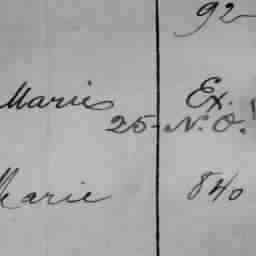 92
Marie Ex.
25 N. O.
Marie 840